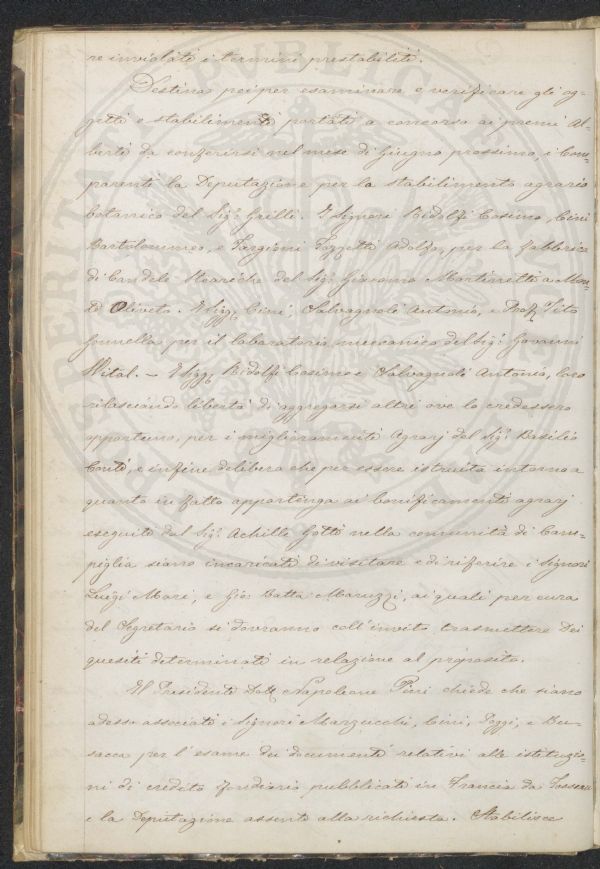 re inviolati i termini prestabiliti.
Destina poi per esaminare e verificare gli og-
getti e stabilimenti portati a concorso ai premi Al-
berti da conferirsi nel mese di Giugno prossimo, i Com-
parenti la Deputazione per lo stabilimento agrario
botanico del Sig.r Grilli. I Signori Ridolfi Cosimo, Cini
Bartolommeo, e Targioni Tozzetti Adolfo, per la fabbrica
di Candele Steariche del Sig.r Giovanni Martinetti a Mon-
te Oliveto. I Sigg. Cini, Salvagnoli Antonio, e Prof. Tito
Gonnella per il laboratorio meccanico del Sig.r Giovanni
Wital. - I Sigg. Ridolfi Cosimo e Salvagnoli Antonio, loro
rilasciando libertà di aggregarsi altri ove lo credessero
opportuno, per i miglioramenti Agrarj del Sig.r Basilio
Conti, e infine delibera che per essere istruita intorno a
quanto in fatto appartenga ai bonificamenti agrarj
eseguiti dal Sig.r Achille Gotti nella comunità di Cam-
piglia siano incaricati di visitare e di riferire i Signori
Luigi Mori, e Gio: Batta Maruzzi, ai quali per cura
del Segretario si dovranno coll'invito trasmettere dei
quesiti determinati in relazione al proposito.
Il Presidente Dott. Napoleone Pini chiede che siano
adesso associati i Signori Marzucchi, Cini, Poggi, e Bu-
sacca per l'esame dei documenti relativi alle istituzio-
ni di credito fondiario pubblicati in Francia da
e la Deputazione assente alla richiesta. Stabilisce